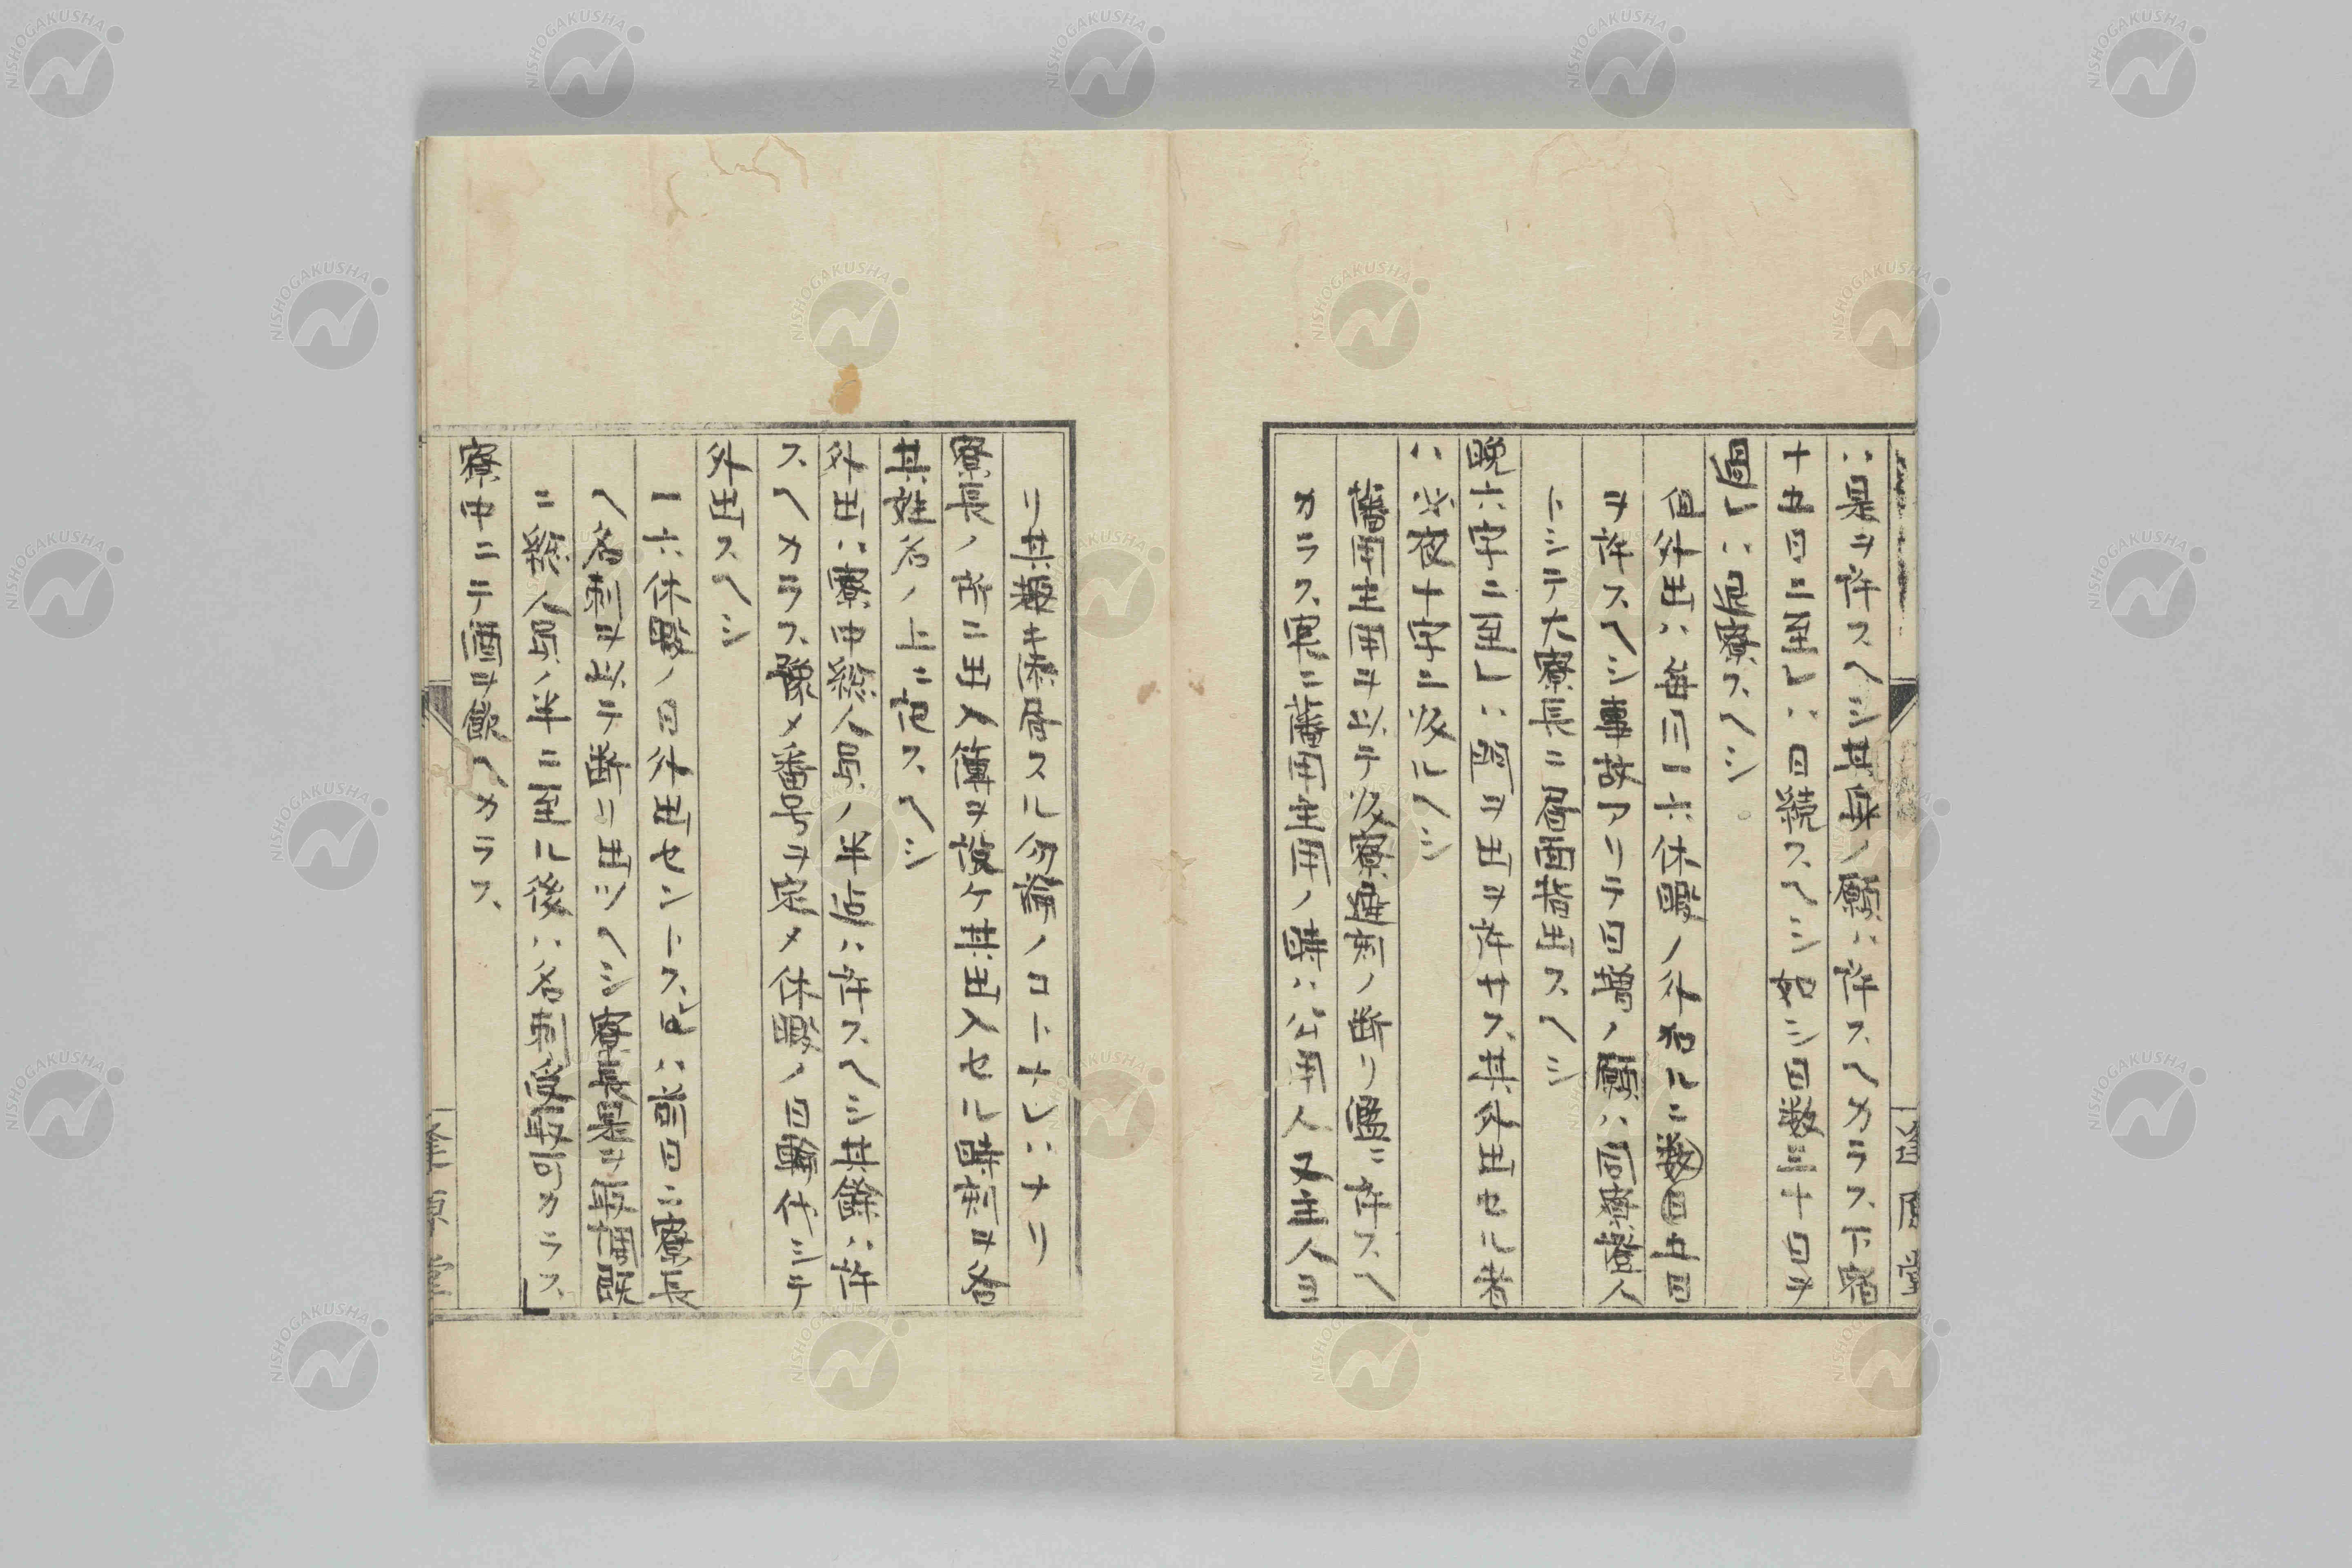 ハ是ヲ許スヘシ其毎ノ願ハ許スヘカラス下宿
十五日ニ至レハ日続スヘシ如シ日数三十日ヲ
過レハ退寮スヘシ
但外出ハ毎月一六休暇ノ外右ルニ数日五日
ヲ許スヘシ事故アリテ日増ノ願ハ同寮證人
トシテ大寮長ニ届面指出スヘシ
晩六字ニ至レハ門ヲ出ヲ許サス其外出セル者
ハ必夜十字ニ皈ルヘシ
藩用主用ヲ以テ皈寮遅刻ノ断リ濫ニ許スヘ
カラス実ニ藩用主用ノ時ハ公用人又主人ヨ
リ其趣キ懸合スル勿論ノヿトナレハナリ
寮長ノ所ニ出入簿ヲ設ケ其出入セル時刻ヲ各
其姓名ノ上ニ記スヘシ
外出ハ寮中総人員ノ半店ハ許スヘシ其餘ハ許
スヘカラス豫メ番号ヲ定メ休暇ノ日輪代シテ
外出スヘシ
一六休暇ノ日外出セントスルハ前日ニ寮長
ヘ名刺ヲ以テ断リ出ツヘシ寮長是ヲ取調既
ニ総人員ノ半ニ至ル後ハ名刺受取可カラス
寮中ニテ酒ヲ飲ヘカラス
NISHOGAKUSHA